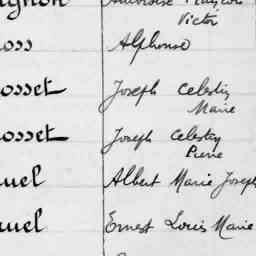 Victor
oss Alphonse
osset Joseph Celestin
Marie
osset Joseph Celestin
Pierre
uel Albert Marie Joseph
uel Ernest Louis Marie